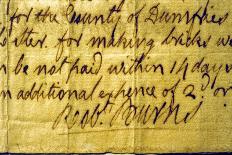 for the County of Dumfries
for making bricks we
be not paid within 14 days
an additional expence of 2
Robt. Burns